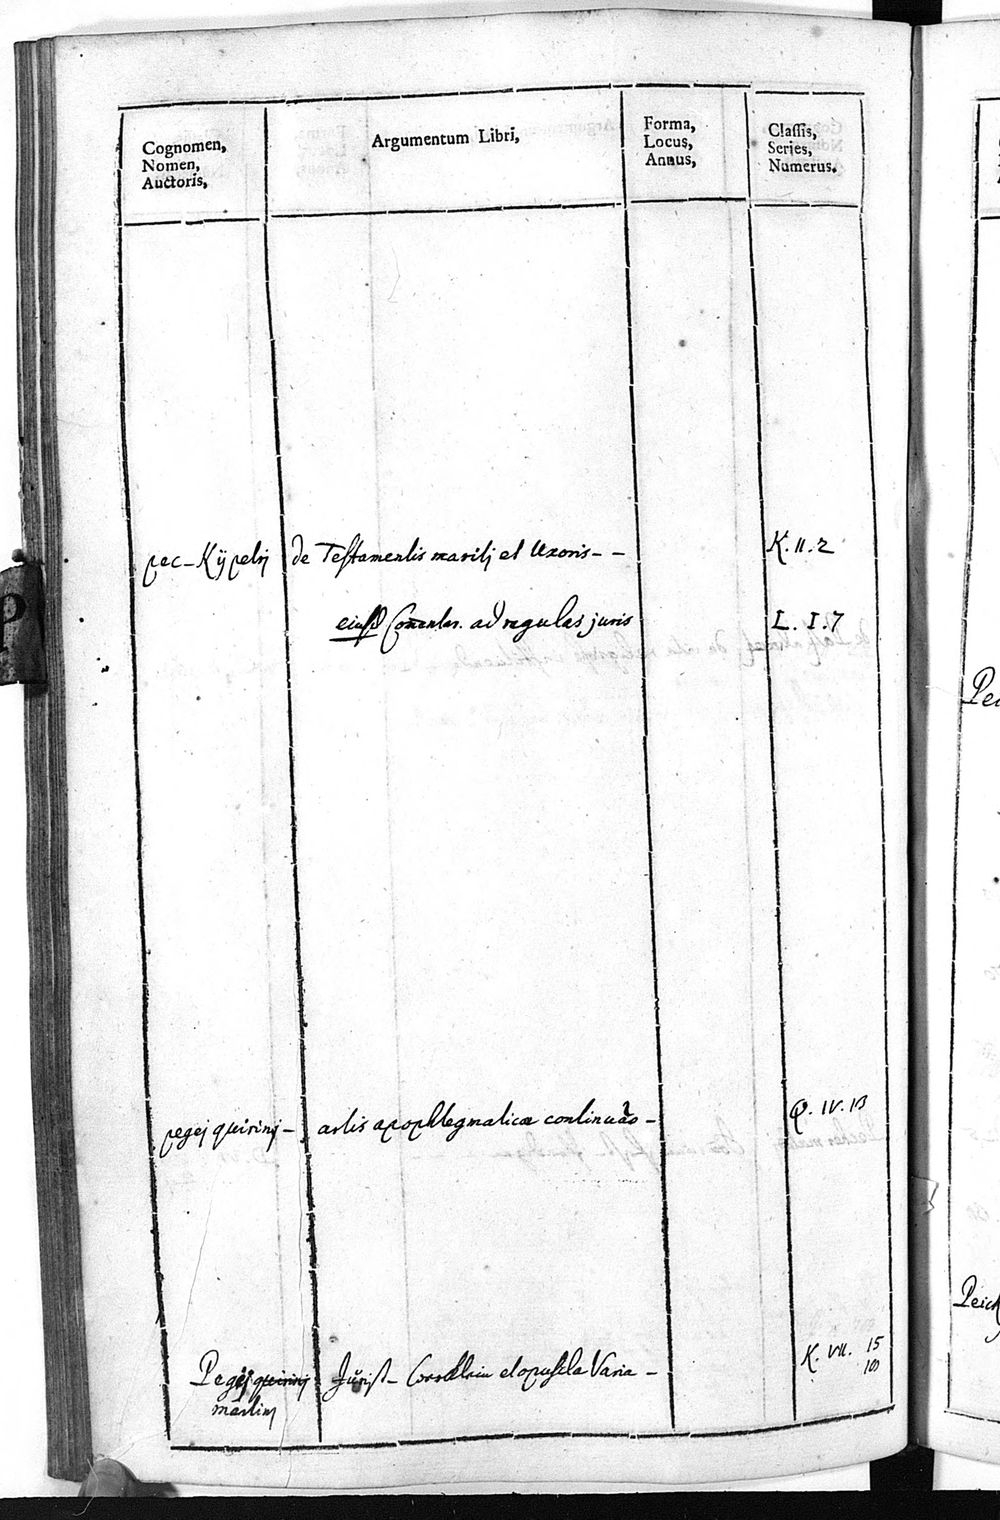 Cognomen,
Nomen,
Auctoris,
Argumentum Libri,
Forma,
Locus,
Annus,
Classis,
Series,
Numerus.
pec-Kÿpelij de Testamentis maritj et Uxoris- - K. II. 2
eiusd Coment. ad regulas juris L. I. 7
pegej quirinj - artis apophtegmaticæ continuão - Q. IV. 13
Pegej quirinj Jurist- et opuscula Varia - K. VII. 15
martinj
P
Pei
Peich